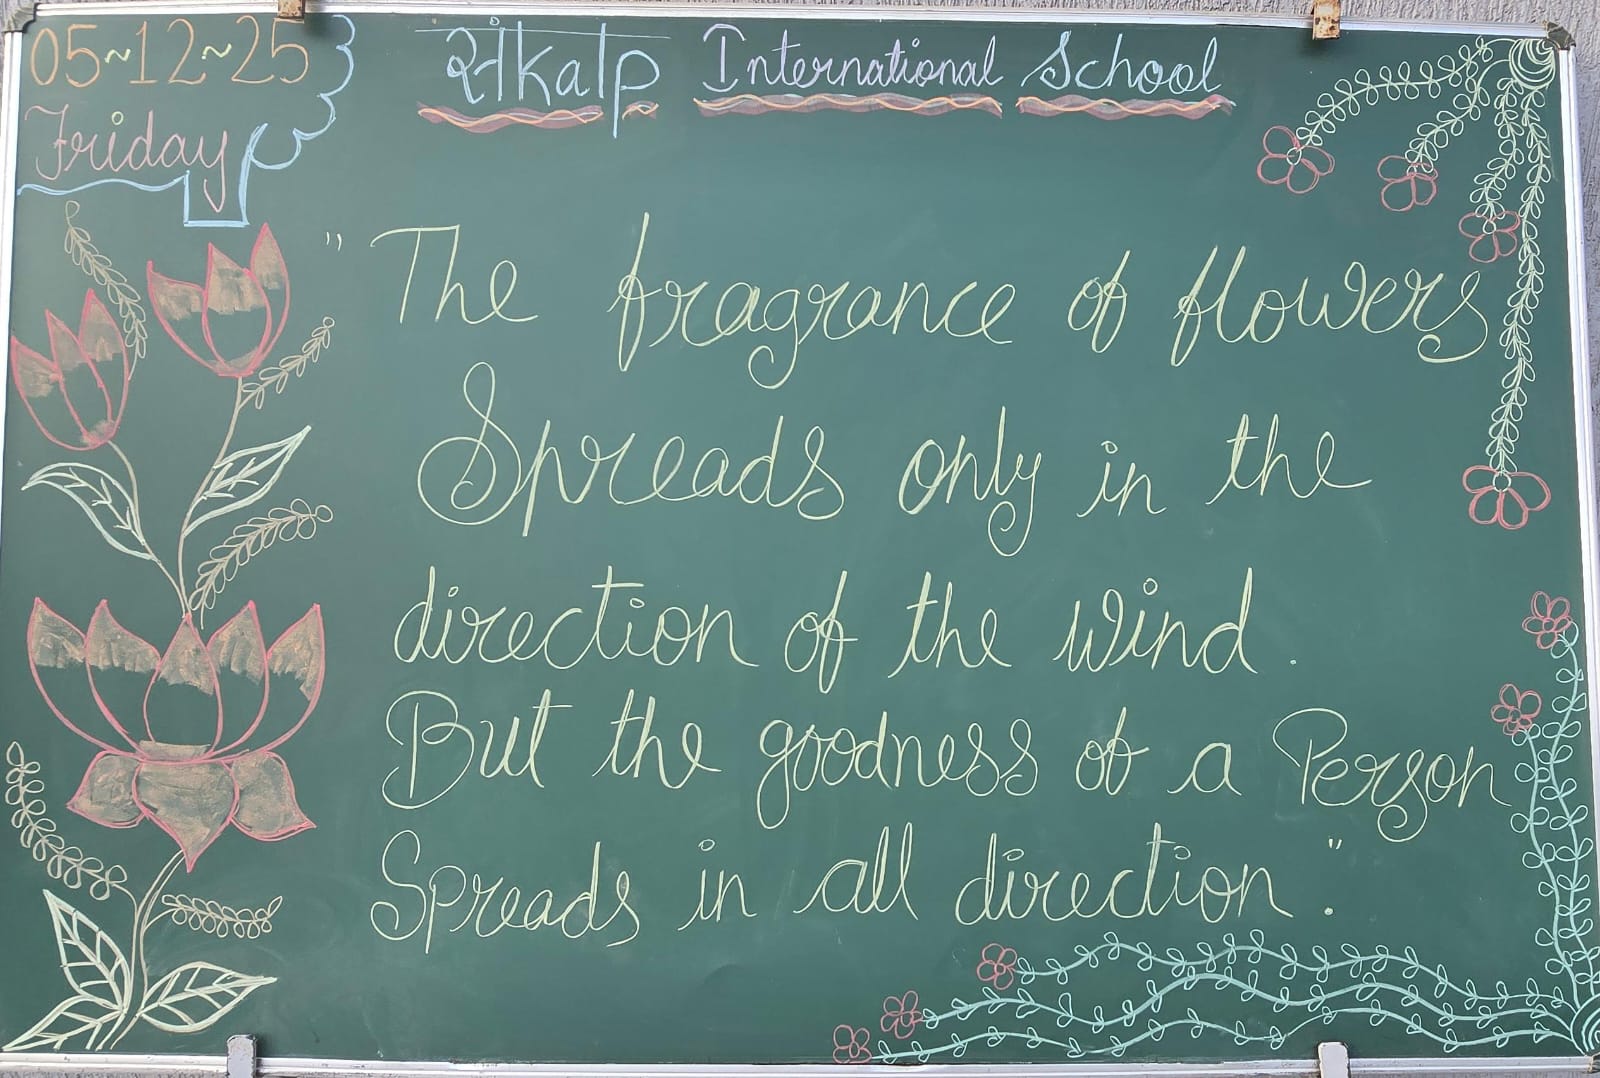 05~12~25
Friday
संkalp International School
"The fragrance of flowers
Spreads only in the
direction of the wind.
But the goodness of a Person
Spreads in all direction."